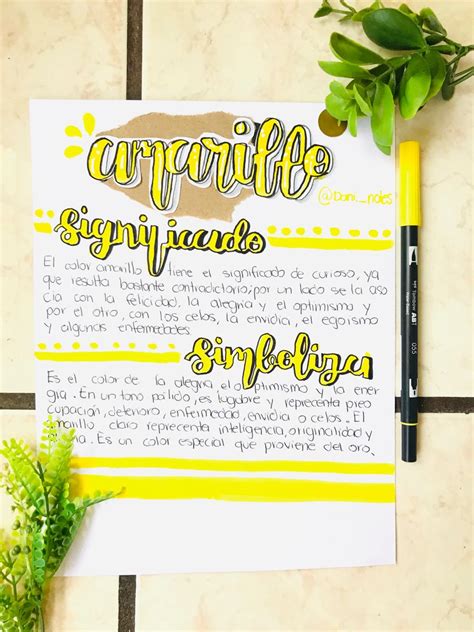 amarillo
@Dani_notes
significado
El color amarillo tiene el significado de curioso, ya
que resulta bastante contradictorio, por un lado se la aso
cia con la felicidad, la alegria y el optimismo y
por el otro, con los celos, la envidia, el egoismo
y algunas enfermedades.
simboliza
Es el color de la alegria, el optimismo y la ener
gia. En un tono palido, es lugubre y representa preo
cupación, deterioro, enfermedad, envidia o celos. El
amarillo claro representa inteligencia, originalidad y
Es un color especial que proviene del oro.
Tombow
ABT
055